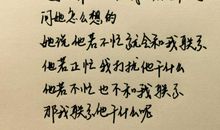 问她怎么想的
她说他若不忙就会和我联系
他若正忙我打扰他干什么
他若不忙也不和我联系
那我联系他干什么呢